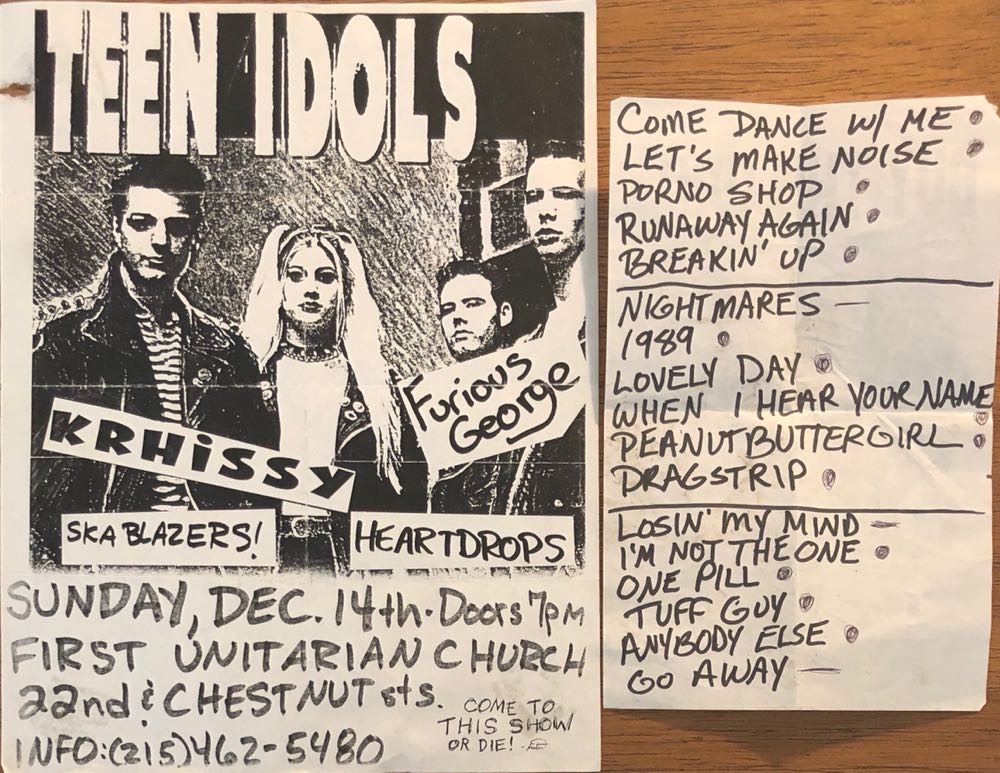 TEEN IDOLS
Furious
George
KRHiSSY
SKA BLAZERS!
HEARTDROPS
SUNDAY, DEC. 14th. Doors 7pm
FIRST UNITARIAN CHURCH
22nd & CHESTNUT sts.
COME TO
THIS SHOW
OR DIE!
INFO:(215)462-5480
COME DANCE W/ ME
LET'S MAKE NOISE
PORNO SHOP
RUNAWAY AGAIN
BREAKIN' UP
NIGHTMARES —
1989
LOVELY DAY
WHEN I HEAR YOUR NAME
PEANUTBUTTERGIRL
DRAGSTRIP
LOSIN' MY MIND —
I'M NOT THE ONE
ONE PILL
TUFF GUY
ANYBODY ELSE
GO AWAY —